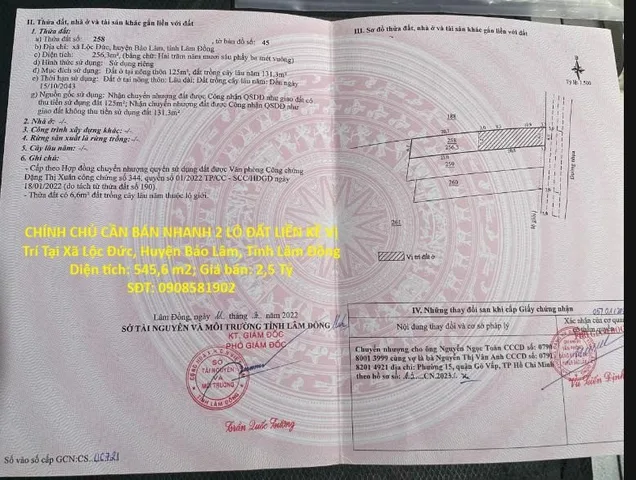 II. Thửa đất, nhà ở và tài sản khác gắn liền với đất
1. Thửa đất:
a) Thửa đất số: 258, tờ bản đồ số: 45
b) Địa chỉ: xã Lộc Đức, huyện Bảo Lâm, tỉnh Lâm Đồng
c) Diện tích: 256,3m², (bằng chữ: Hai trăm năm mươi sáu phẩy ba mét vuông)
d) Hình thức sử dụng: Sử dụng riêng
đ) Mục đích sử dụng: Đất ở tại nông thôn 125m², đất trồng cây lâu năm 131.3m²
e) Thời hạn sử dụng: Đất ở tại nông thôn: Lâu dài; Đất trồng cây lâu năm: Đến ngày
15/10/2043
g) Nguồn gốc sử dụng: Nhận chuyển nhượng đất được Công nhận QSDĐ như giao đất có
thu tiền sử dụng đất 125m²; Nhận chuyển nhượng đất được Công nhận QSDĐ như
giao đất không thu tiền sử dụng đất 131.3m²
2. Nhà ở: -/-
3. Công trình xây dựng khác: -/-
4. Rừng sản xuất là rừng trồng: -/-
5. Cây lâu năm: -/-
6. Ghi chú:
- Cấp theo Hợp đồng chuyển nhượng quyền sử dụng đất được Văn phòng Công chứng
Đặng Thị Xuân công chứng số 344, quyển số 01/2022 TP/CC - SCC/HĐGD ngày
18/01/2022 (do tách từ thửa đất số 190).
- Thửa đất có 6,6m² đất thuộc lộ giới.
CHÍNH CHỦ CẦN BÁN NHANH 2 LÔ ĐẤT LIỀN KỀ VỊ
Trí Tại Xã Lộc Đức, Huyện Bảo Lâm, Tỉnh Lâm Đồng
Diện tích: 545,6 m2; Giá bán: 2,5 Tỷ
SĐT: 0908581902
Lâm Đồng, ngày tháng năm 2022
SỞ TÀI NGUYÊN VÀ MÔI TRƯỜNG TỈNH LÂM ĐỒNG
KT. GIÁM ĐỐC
PHÓ GIÁM ĐỐC
SỞ
TÀI NGUYÊN
VÀ
MÔI TRƯỜNG
TỈNH LÂM ĐỒNG
Trần Quốc Vượng
Số vào sổ cấp GCN:CS
III. Sơ đồ thửa đất, nhà ở và tài sản khác gắn liền với đất
Tỷ lệ 1:500
188
258
256.3
259
260
261
Đường nhựa
Vị trí đất ở
IV. Những thay đổi sau khi cấp Giấy chứng nhận
Nội dung thay đổi và cơ sở pháp lý
Xác nhận của cơ quan
có thẩm quyền
Chuyển nhượng cho ông Nguyễn Ngọc Toàn CCCD số: 0790
8001 3999 cùng vợ là bà Nguyễn Thị Vân Anh CCCD số: 0791
8201 4921 địa chỉ: Phường 15, quận Gò Vấp, TP Hồ Chí Minh
theo hồ sơ số: CN.2023